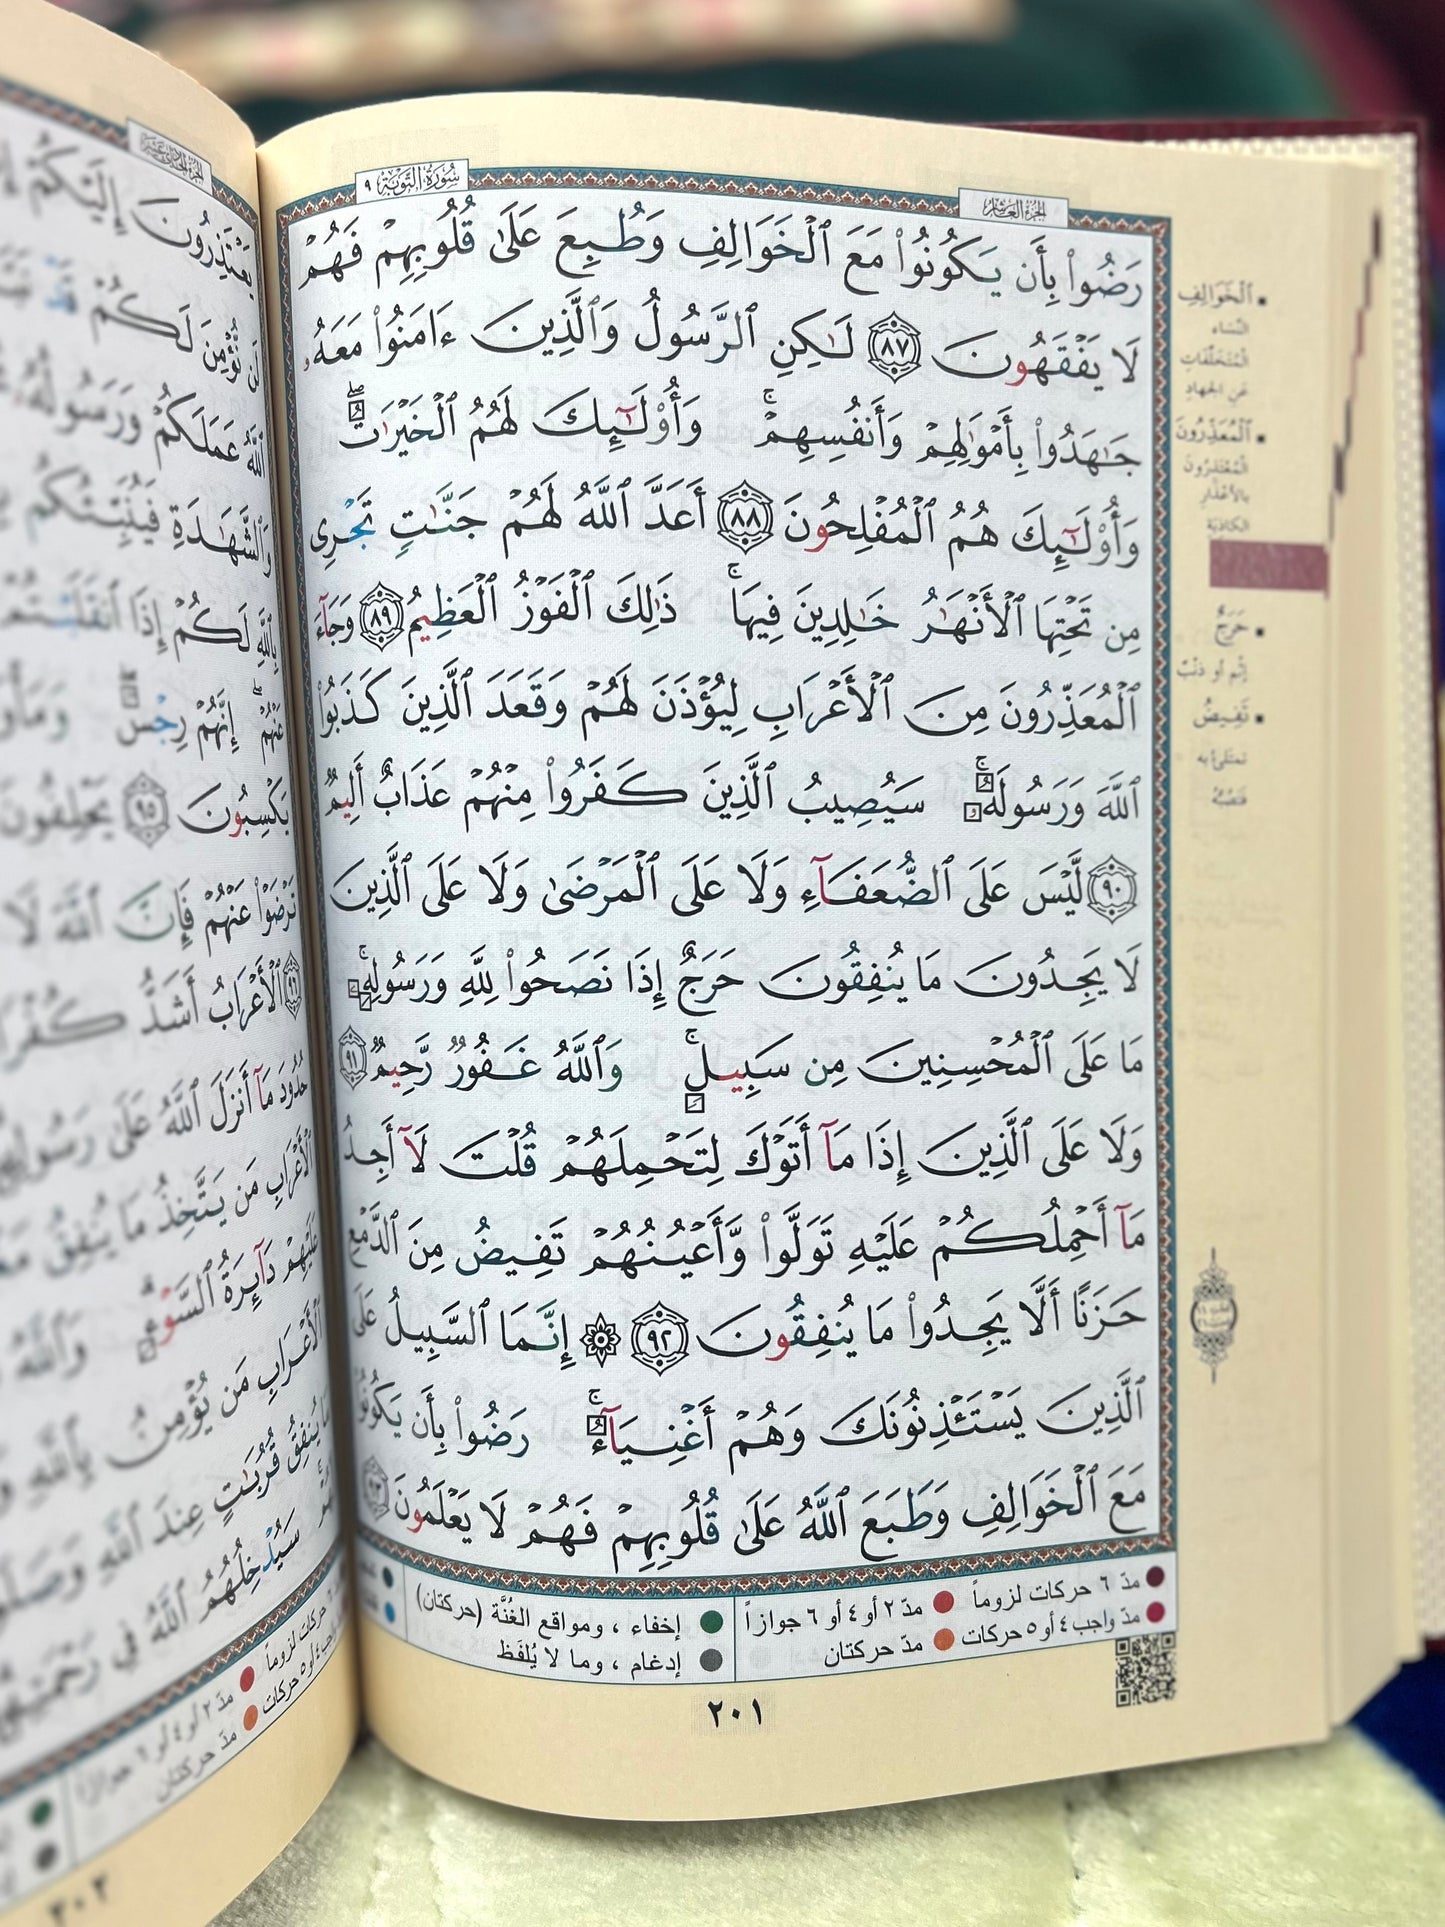 سُورَةُ التَّوْبَة ٩
الجُزءُ العَاشِرُ
رَضُوا۟ بِأَن يَكُونُوا۟ مَعَ ٱلْخَوَالِفِ وَطُبِعَ عَلَىٰ قُلُوبِهِمْ فَهُمْ
لَا يَفْقَهُونَ ٨٧ لَـٰكِنِ ٱلرَّسُولُ وَٱلَّذِينَ ءَامَنُوا۟ مَعَهُۥ
جَـٰهَدُوا۟ بِأَمْوَٰلِهِمْ وَأَنفُسِهِمْ ۚ وَأُو۟لَـٰٓئِكَ لَهُمُ ٱلْخَيْرَٰتُ ۖ
وَأُو۟لَـٰٓئِكَ هُمُ ٱلْمُفْلِحُونَ ٨٨ أَعَدَّ ٱللَّهُ لَهُمْ جَنَّـٰتٍ تَجْرِى
مِن تَحْتِهَا ٱلْأَنْهَـٰرُ خَـٰلِدِينَ فِيهَا ۚ ذَٰلِكَ ٱلْفَوْزُ ٱلْعَظِيمُ ٨٩ وَجَآءَ
ٱلْمُعَذِّرُونَ مِنَ ٱلْأَعْرَابِ لِيُؤْذَنَ لَهُمْ وَقَعَدَ ٱلَّذِينَ كَذَبُوا۟
ٱللَّهَ وَرَسُولَهُۥ ۚ سَيُصِيبُ ٱلَّذِينَ كَفَرُوا۟ مِنْهُمْ عَذَابٌ أَلِيمٌ
٩٠ لَّيْسَ عَلَى ٱلضُّعَفَآءِ وَلَا عَلَى ٱلْمَرْضَىٰ وَلَا عَلَى ٱلَّذِينَ
لَا يَجِدُونَ مَا يُنفِقُونَ حَرَجٌ إِذَا نَصَحُوا۟ لِلَّهِ وَرَسُولِهِۦ ۚ
مَا عَلَى ٱلْمُحْسِنِينَ مِن سَبِيلٍ ۚ وَٱللَّهُ غَفُورٌ رَّحِيمٌ ٩١
وَلَا عَلَى ٱلَّذِينَ إِذَا مَآ أَتَوْكَ لِتَحْمِلَهُمْ قُلْتَ لَآ أَجِدُ
مَآ أَحْمِلُكُمْ عَلَيْهِ تَوَلَّوا۟ وَّأَعْيُنُهُمْ تَفِيضُ مِنَ ٱلدَّمْعِ
حَزَنًا أَلَّا يَجِدُوا۟ مَا يُنفِقُونَ ٩٢ ۞ إِنَّمَا ٱلسَّبِيلُ عَلَى
ٱلَّذِينَ يَسْتَـْٔذِنُونَكَ وَهُمْ أَغْنِيَآءُ ۚ رَضُوا۟ بِأَن يَكُونُوا۟
مَعَ ٱلْخَوَالِفِ وَطَبَعَ ٱللَّهُ عَلَىٰ قُلُوبِهِمْ فَهُمْ لَا يَعْلَمُونَ ٩٣
▪ ٱلْخَوَالِفِ
النِّسَاء
الْمُتَخَلِّفَاتِ
عَنِ الجِهَادِ
▪ ٱلْمُعَذِّرُونَ
الْمُعْتَذِرُونَ
بالأعْذَارِ
الكاذبَة
▪ حَرَجٌ
إثْم أو ذنْبٌ
▪ تَفِيضُ
تمتلئ به
فتصُبُّهُ
مدّ ٦ حركات لزوماً
مدّ ٢ أو ٤ أو ٦ جوازاً
إخفاء ، ومواقع الغُنَّة (حركتان)
مدّ واجب ٤ أو ٥ حركات
مدّ حركتان
إدغام ، وما لا يُلفَظ
٢٠١
الجُزءُ الحَادِي عَشَرَ
يَعْتَذِرُونَ إِلَيْكُمْ
لَن نُّؤْمِنَ لَكُمْ قَدْ
ٱللَّهُ عَمَلَكُمْ وَرَسُولُهُۥ
وَٱلشَّهَـٰدَةِ فَيُنَبِّئُكُم
بِٱللَّهِ لَكُمْ إِذَا ٱنقَلَبْتُمْ
عَنْهُمْ ۖ إِنَّهُمْ رِجْسٌ ۖ
يَكْسِبُونَ ٩٥ يَحْلِفُونَ
تَرْضَوْا۟ عَنْهُمْ فَإِنَّ ٱللَّهَ لَا
٩٦ ٱلْأَعْرَابُ أَشَدُّ كُفْرًا
حُدُودَ مَآ أَنزَلَ ٱللَّهُ عَلَىٰ رَسُولِهِۦ
ٱلْأَعْرَابِ مَن يَتَّخِذُ مَا يُنفِقُ
عَلَيْهِمْ دَآئِرَةُ ٱلسَّوْءِ ۗ وَٱللَّهُ
ٱلْأَعْرَابِ مَن يُؤْمِنُ بِٱللَّهِ
مَا يُنفِقُ قُرُبَـٰتٍ عِندَ ٱللَّهِ
سَيُدْخِلُهُمُ ٱللَّهُ فِى رَحْمَتِهِۦٓ
حركات لزوماً
مدّ ٢ أو ٤ أو ٦ جوازاً
مدّ حركتان
٢٠٢